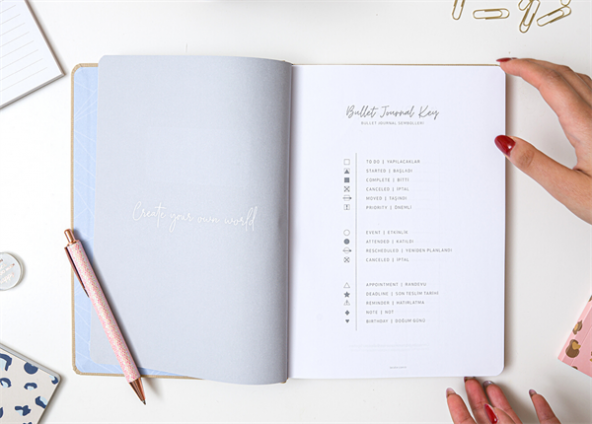 Create your own world
Bullet Journal Key
BULLET JOURNAL SEMBOLLERİ
TO DO | YAPILACAKLAR
STARTED | BAŞLADI
COMPLETE | BİTTİ
CANCELED | İPTAL
MOVED | TAŞINDI
PRIORITY | ÖNEMLİ
EVENT | ETKİNLİK
ATTENDED | KATILDI
RESCHEDULED | YENİDEN PLANLANDI
CANCELED | İPTAL
APPOINTMENT | RANDEVU
DEADLINE | SON TESLİM TARİHİ
REMINDER | HATIRLATMA
NOTE | NOT
BIRTHDAY | DOĞUM GÜNÜ